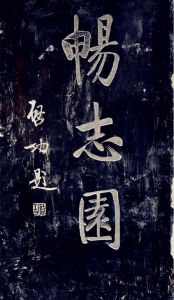 暢志園
啓功題